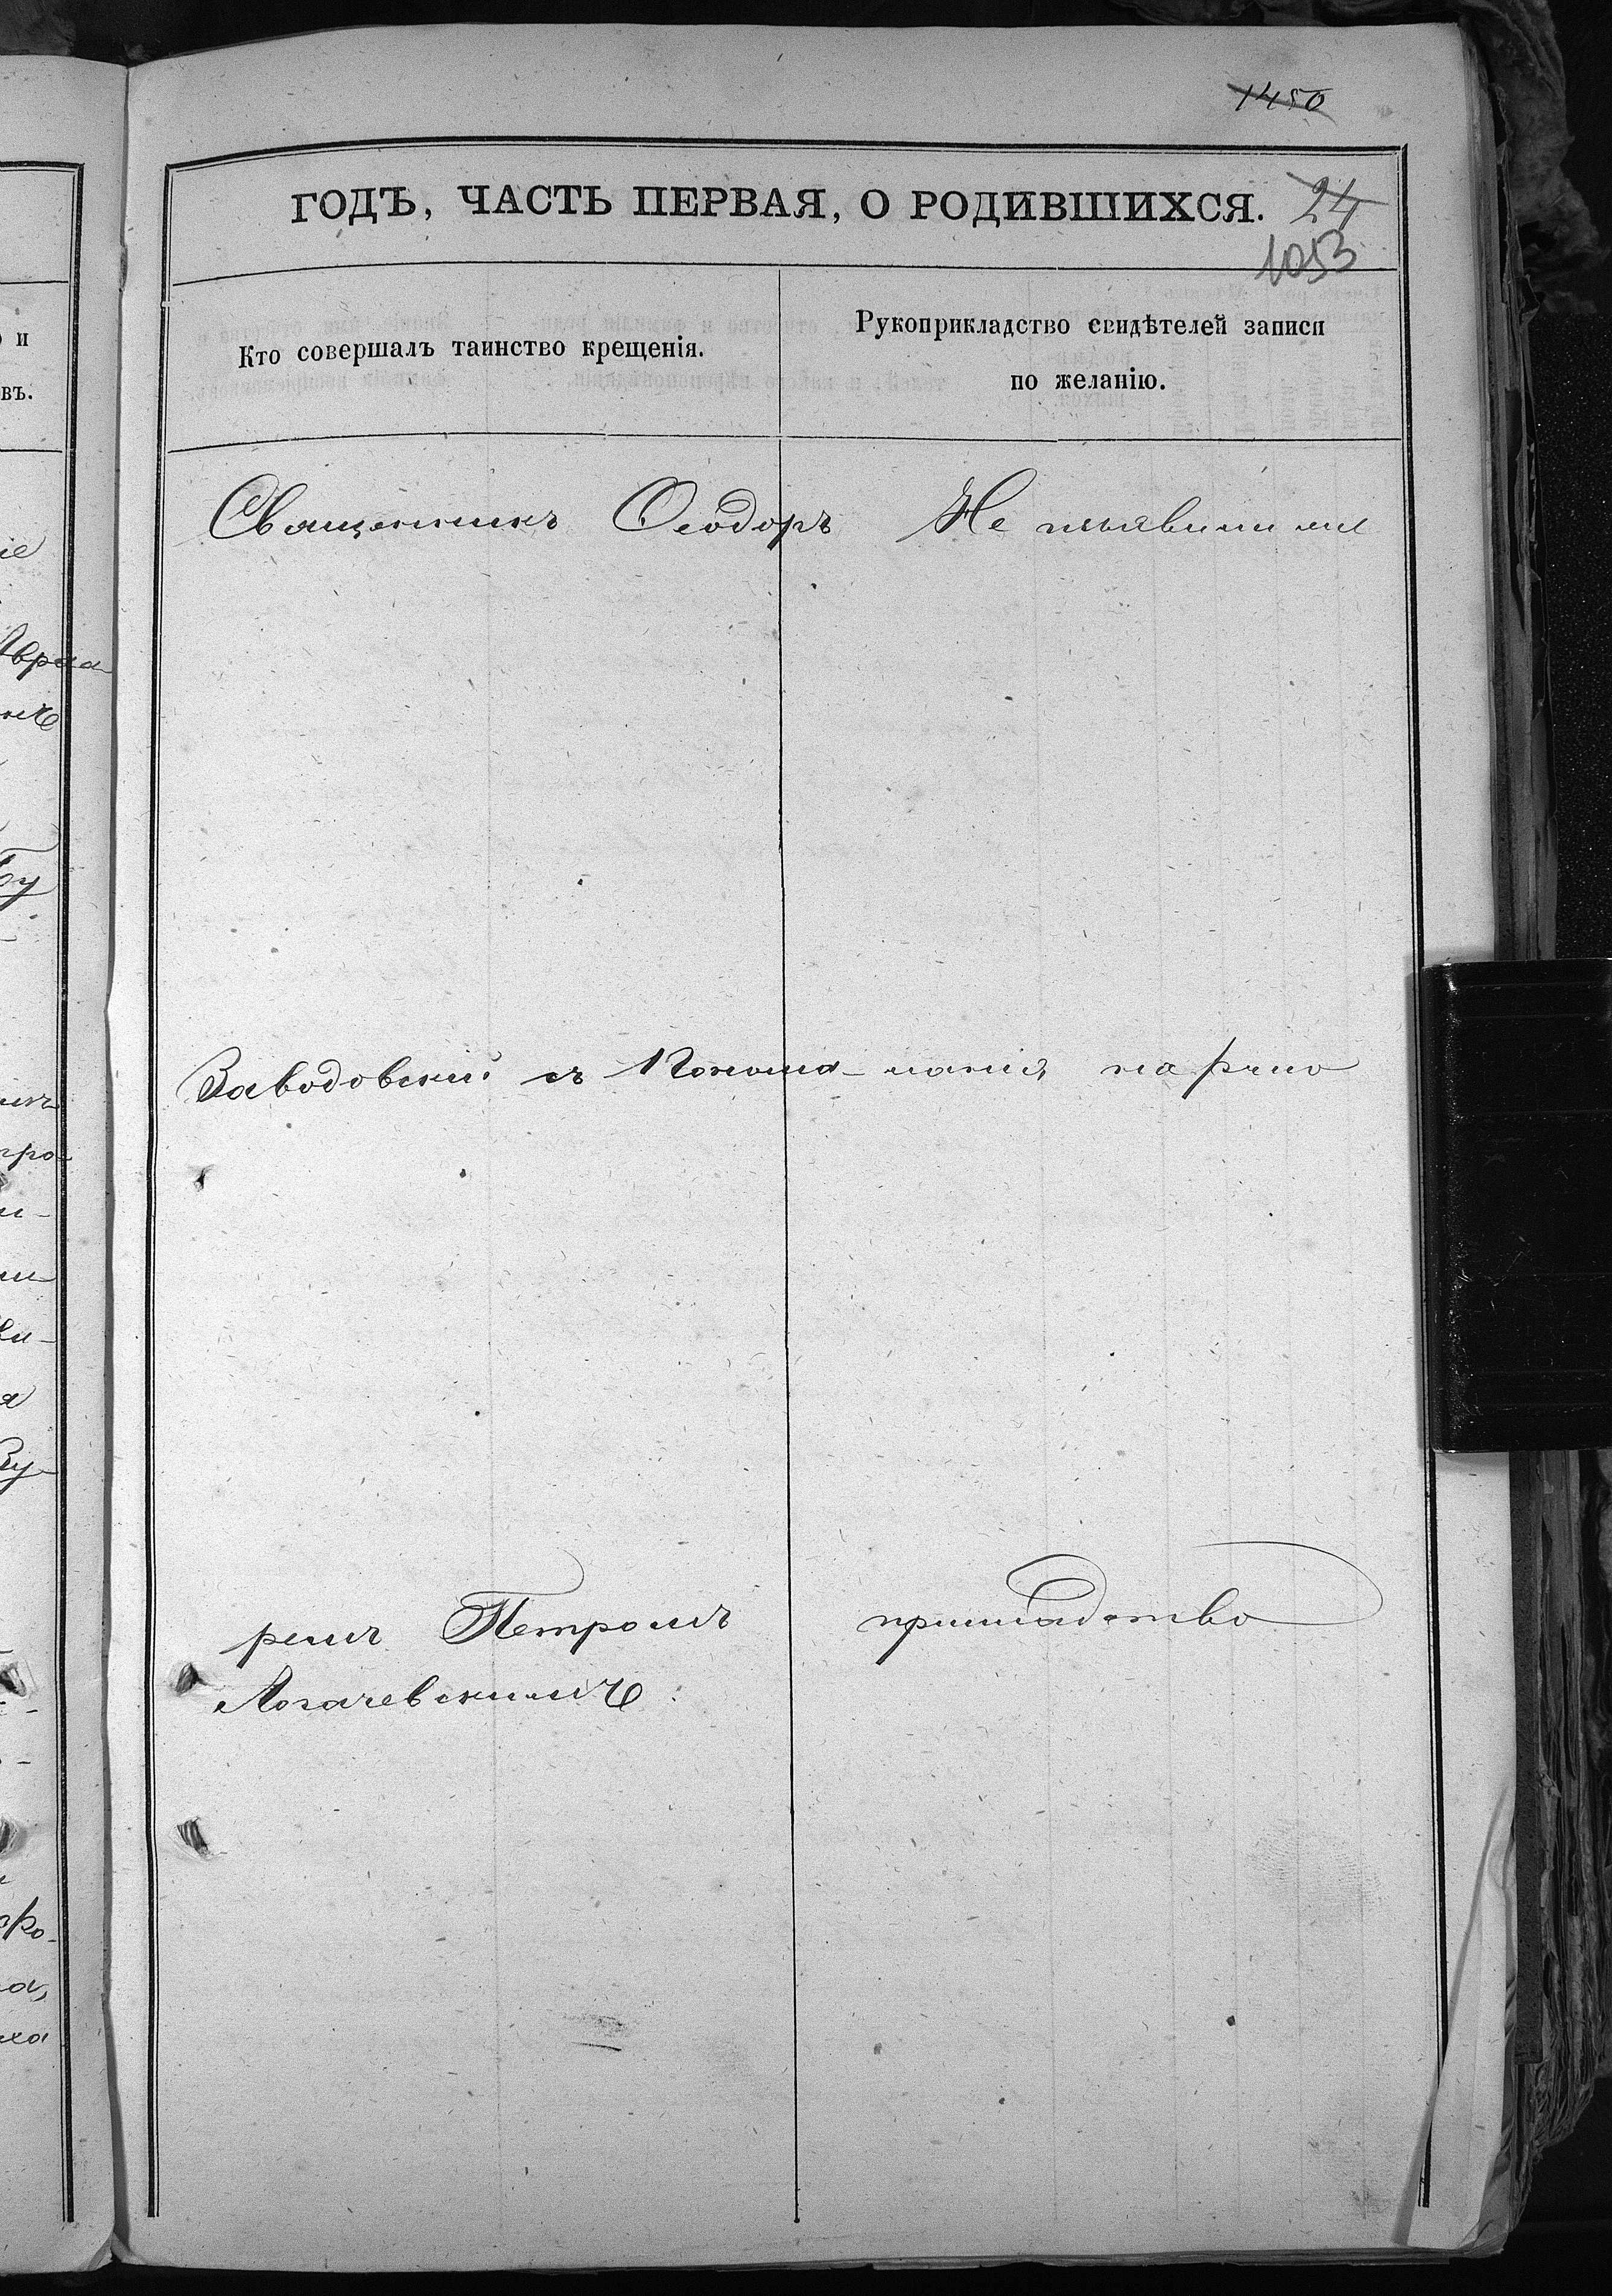 1450
ГОДЪ, ЧАСТЬ ПЕРВАЯ, О РОДИВШИХСЯ. 24
1053
Кто совершалъ таинство крещенія.
Рукоприкладство свидѣтелей записи
по желанію.
и
въ.
Священникъ Ѳеодоръ
Не изъявили же
Заводовскій съ Понома-
ланія на руко
ремъ Петромъ
Логачевскимъ
прикладство